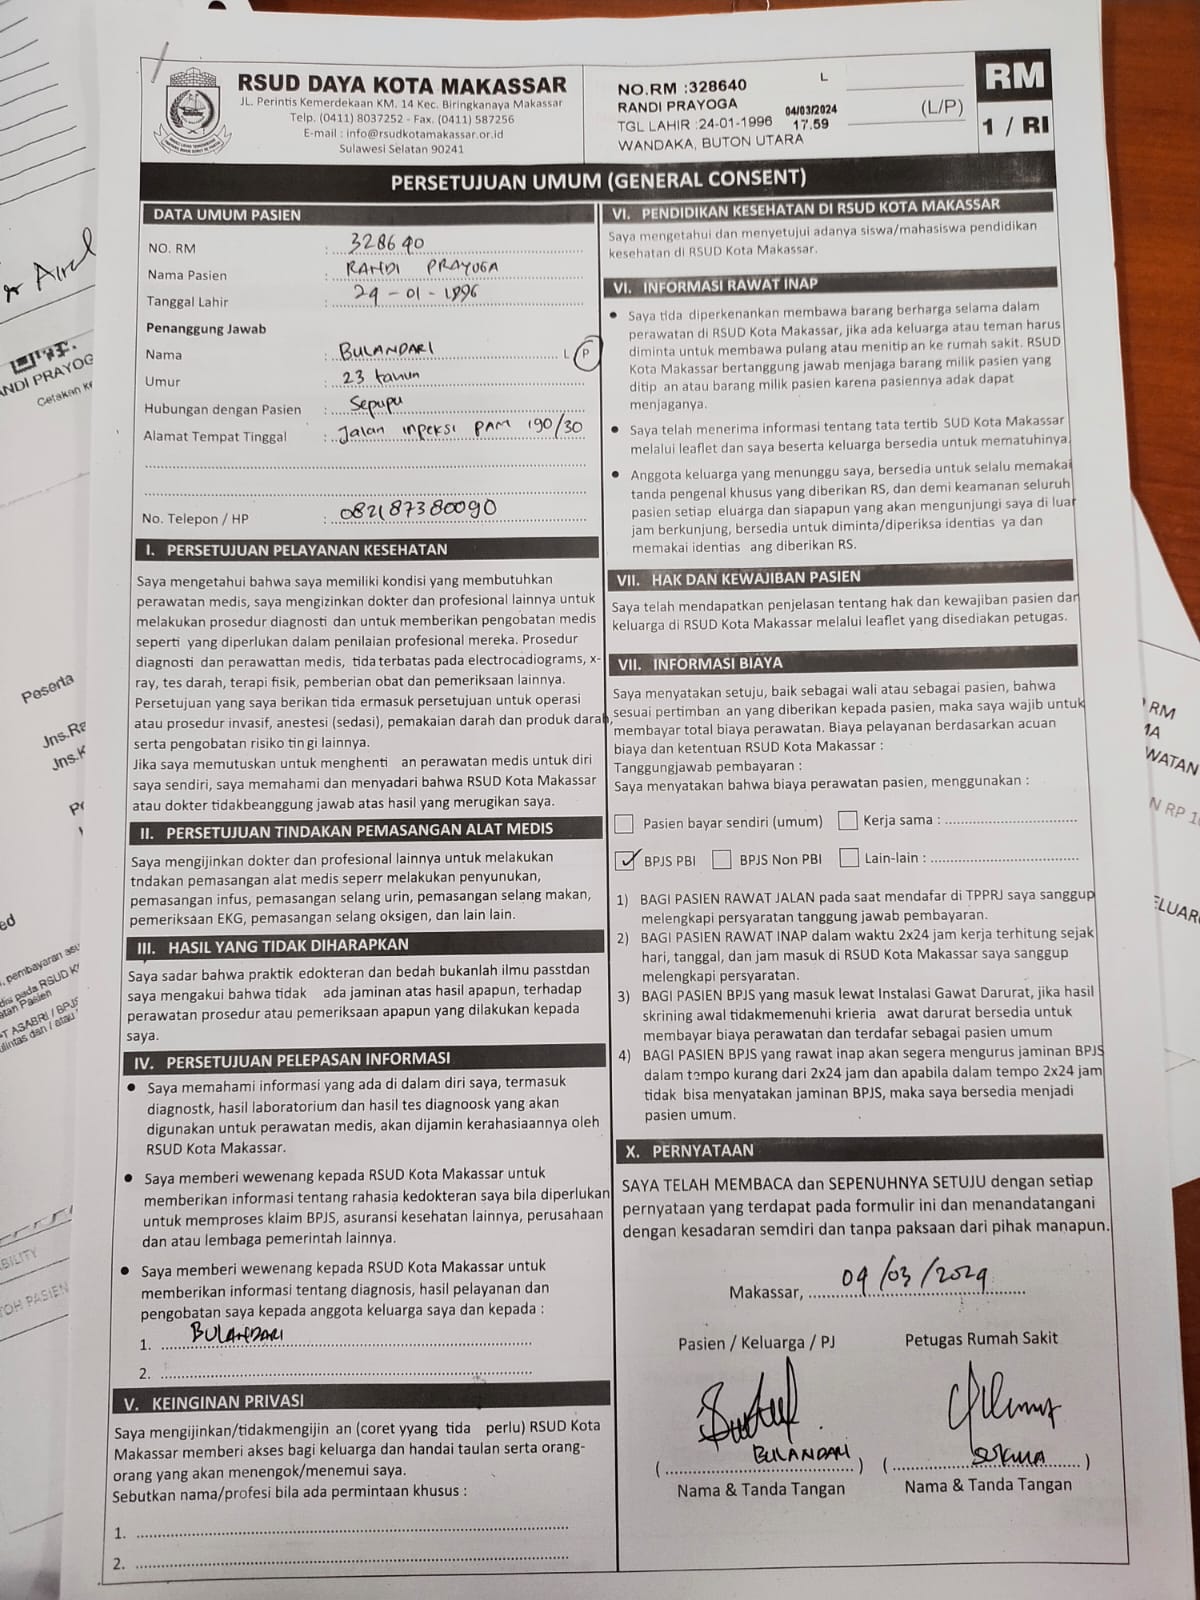 RSUD DAYA KOTA MAKASSAR
JL. Perintis Kemerdekaan KM. 14 Kec. Biringkanaya Makassar
Telp. (0411) 8037252 - Fax. (0411) 587256
E-mail : info@rsudkotamakassar.or.id
Sulawesi Selatan 90241
NO.RM :328640 L
RANDI PRAYOGA 04/03/2024
TGL LAHIR :24-01-1996 17.59
WANDAKA, BUTON UTARA
(L/P)
RM
1 / RI
PERSETUJUAN UMUM (GENERAL CONSENT)
DATA UMUM PASIEN
NO. RM : 328640
Nama Pasien : RANDI PRAYOGA
Tanggal Lahir : 24 - 01 - 1996
Penanggung Jawab
Nama : BULANDARI L P
Umur : 23 tahun
Hubungan dengan Pasien : Sepupu
Alamat Tempat Tinggal : Jalan inpeksi PAM 190/30
No. Telepon / HP : 082187380090
I. PERSETUJUAN PELAYANAN KESEHATAN
Saya mengetahui bahwa saya memiliki kondisi yang membutuhkan
perawatan medis, saya mengizinkan dokter dan profesional lainnya untuk
melakukan prosedur diagnosti dan untuk memberikan pengobatan medis
seperti yang diperlukan dalam penilaian profesional mereka. Prosedur
diagnosti dan perawattan medis, tida terbatas pada electrocadiograms, x-
ray, tes darah, terapi fisik, pemberian obat dan pemeriksaan lainnya.
Persetujuan yang saya berikan tida ermasuk persetujuan untuk operasi
atau prosedur invasif, anestesi (sedasi), pemakaian darah dan produk darah,
serta pengobatan risiko tin gi lainnya.
Jika saya memutuskan untuk menghenti an perawatan medis untuk diri
saya sendiri, saya memahami dan menyadari bahwa RSUD Kota Makassar
atau dokter tidakbeanggung jawab atas hasil yang merugikan saya.
II. PERSETUJUAN TINDAKAN PEMASANGAN ALAT MEDIS
Saya mengijinkan dokter dan profesional lainnya untuk melakukan
tndakan pemasangan alat medis seperr melakukan penyunukan,
pemasangan infus, pemasangan selang urin, pemasangan selang makan,
pemeriksaan EKG, pemasangan selang oksigen, dan lain lain.
III. HASIL YANG TIDAK DIHARAPKAN
Saya sadar bahwa praktik edokteran dan bedah bukanlah ilmu passtdan
saya mengakui bahwa tidak ada jaminan atas hasil apapun, terhadap
perawatan prosedur atau pemeriksaan apapun yang dilakukan kepada
saya.
IV. PERSETUJUAN PELEPASAN INFORMASI
• Saya memahami informasi yang ada di dalam diri saya, termasuk
diagnostk, hasil laboratorium dan hasil tes diagnoosk yang akan
digunakan untuk perawatan medis, akan dijamin kerahasiaannya oleh
RSUD Kota Makassar.
• Saya memberi wewenang kepada RSUD Kota Makassar untuk
memberikan informasi tentang rahasia kedokteran saya bila diperlukan
untuk memproses klaim BPJS, asuransi kesehatan lainnya, perusahaan
dan atau lembaga pemerintah lainnya.
• Saya memberi wewenang kepada RSUD Kota Makassar untuk
memberikan informasi tentang diagnosis, hasil pelayanan dan
pengobatan saya kepada anggota keluarga saya dan kepada :
1. BULANDARI
2.
V. KEINGINAN PRIVASI
Saya mengijinkan/tidakmengijin an (coret yyang tida perlu) RSUD Kota
Makassar memberi akses bagi keluarga dan handai taulan serta orang-
orang yang akan menengok/menemui saya.
Sebutkan nama/profesi bila ada permintaan khusus :
1.
2.
VI. PENDIDIKAN KESEHATAN DI RSUD KOTA MAKASSAR
Saya mengetahui dan menyetujui adanya siswa/mahasiswa pendidikan
kesehatan di RSUD Kota Makassar.
VI. INFORMASI RAWAT INAP
• Saya tida diperkenankan membawa barang berharga selama dalam
perawatan di RSUD Kota Makassar, jika ada keluarga atau teman harus
diminta untuk membawa pulang atau menitip an ke rumah sakit. RSUD
Kota Makassar bertanggung jawab menjaga barang milik pasien yang
ditip an atau barang milik pasien karena pasiennya adak dapat
menjaganya.
• Saya telah menerima informasi tentang tata tertib SUD Kota Makassar
melalui leaflet dan saya beserta keluarga bersedia untuk mematuhinya.
• Anggota keluarga yang menunggu saya, bersedia untuk selalu memakai
tanda pengenal khusus yang diberikan RS, dan demi keamanan seluruh
pasien setiap eluárga dan siapapun yang akan mengunjungi saya di luar
jam berkunjung, bersedia untuk diminta/diperiksa identias ya dan
memakai identias ang diberikan RS.
VII. HAK DAN KEWAJIBAN PASIEN
Saya telah mendapatkan penjelasan tentang hak dan kewajiban pasien dan
keluarga di RSUD Kota Makassar melalui leaflet yang disediakan petugas.
VII. INFORMASI BIAYA
Saya menyatakan setuju, baik sebagai wali atau sebagai pasien, bahwa
sesuai pertimban an yang diberikan kepada pasien, maka saya wajib untuk
membayar total biaya perawatan. Biaya pelayanan berdasarkan acuan
biaya dan ketentuan RSUD Kota Makassar :
Tanggungjawab pembayaran :
Saya menyatakan bahwa biaya perawatan pasien, menggunakan :
Pasien bayar sendiri (umum) Kerja sama :
✓ BPJS PBI BPJS Non PBI Lain-lain :
1) BAGI PASIEN RAWAT JALAN pada saat mendafar di TPPRJ saya sanggup
melengkapi persyaratan tanggung jawab pembayaran.
2) BAGI PASIEN RAWAT INAP dalam waktu 2x24 jam kerja terhitung sejak
hari, tanggal, dan jam masuk di RSUD Kota Makassar saya sanggup
melengkapi persyaratan.
3) BAGI PASIEN BPJS yang masuk lewat Instalasi Gawat Darurat, jika hasil
skrining awal tidakmemenuhi krieria awat darurat bersedia untuk
membayar biaya perawatan dan terdafar sebagai pasien umum
4) BAGI PASIEN BPJS yang rawat inap akan segera mengurus jaminan BPJS
dalam tempo kurang dari 2x24 jam dan apabila dalam tempo 2x24 jam
tidak bisa menyatakan jaminan BPJS, maka saya bersedia menjadi
pasien umum.
X. PERNYATAAN
SAYA TELAH MEMBACA dan SEPENUHNYA SETUJU dengan setiap
pernyataan yang terdapat pada formulir ini dan menandatangani
dengan kesadaran semdiri dan tanpa paksaan dari pihak manapun.
Makassar, 04/03/2024
Pasien / Keluarga / PJ Petugas Rumah Sakit
( BULANDARI ) ( )
Nama & Tanda Tangan Nama & Tanda Tangan
Peserta